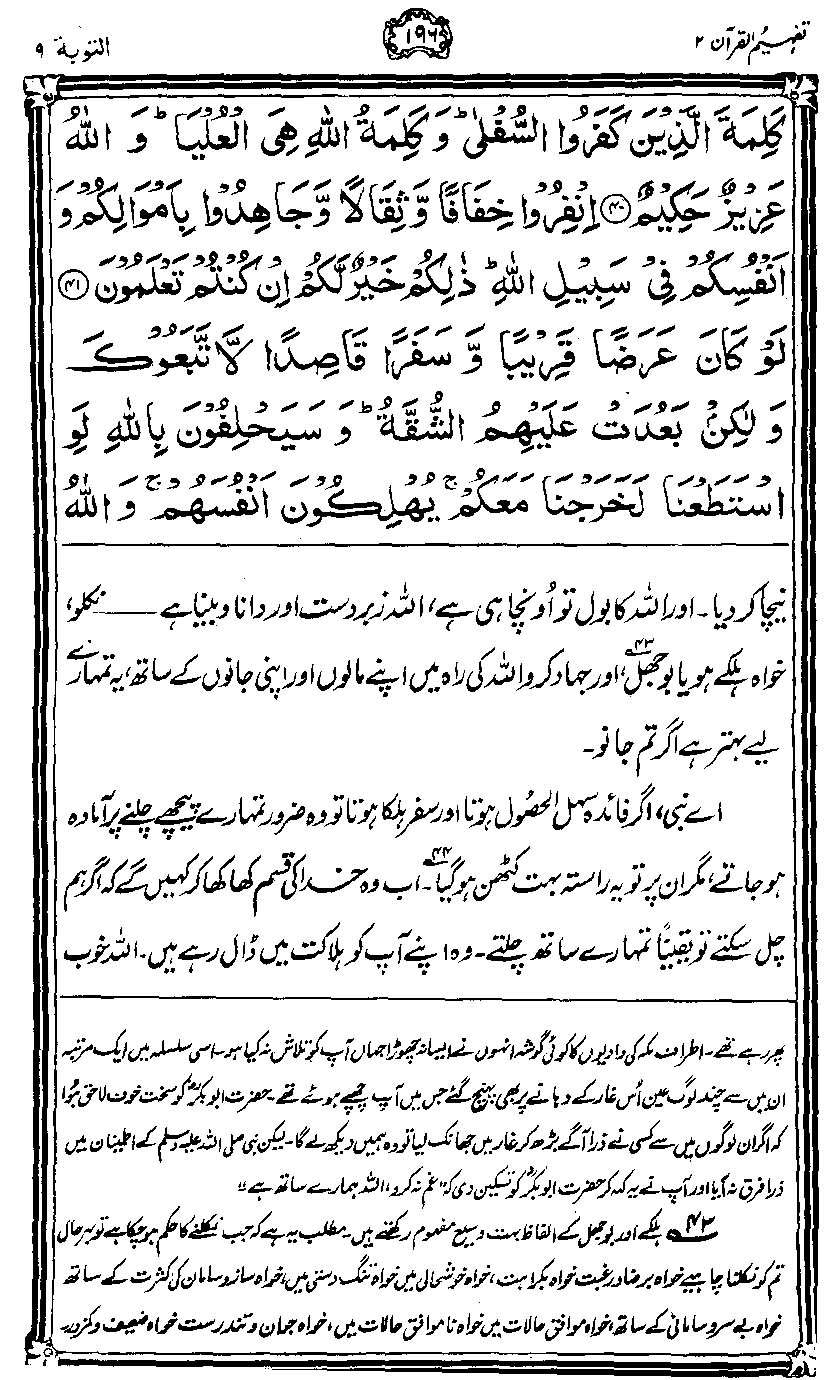 تفہیم القرآن ۲
۱۹۶
التوبۃ ۹
كَلِمَةَ الَّذِيْنَ كَفَرُوا السُّفْلٰى ؕ وَ كَلِمَةُ اللّٰهِ هِىَ الْعُلْيَا ؕ وَ اللّٰهُ
عَزِيْزٌ حَكِيْمٌ ﴿۴۰﴾ اِنْفِرُوْا خِفَافًا وَّ ثِقَالًا وَّ جَاهِدُوْا بِاَمْوَالِكُمْ وَ
اَنْفُسِكُمْ فِىْ سَبِيْلِ اللّٰهِ ؕ ذٰلِكُمْ خَيْرٌ لَّكُمْ اِنْ كُنْتُمْ تَعْلَمُوْنَ ﴿۴۱﴾
لَوْ كَانَ عَرَضًا قَرِيْبًا وَّ سَفَرًا قَاصِدًا لَّاتَّبَعُوْكَ
وَ لٰكِنْۢ بَعُدَتْ عَلَيْهِمُ الشُّقَّةُ ؕ وَ سَيَحْلِفُوْنَ بِاللّٰهِ لَوِ
اسْتَطَعْنَا لَخَرَجْنَا مَعَكُمْ ۚ يُهْلِكُوْنَ اَنْفُسَهُمْ ۚ وَ اللّٰهُ
نیچا کر دیا۔ اور اللہ کا بول تو اُونچا ہی ہے، اللہ زبردست اور دانا و بینا ہے ——— نکلو،
خواہ ہلکے ہو یا بوجھل،۴۳ اور جہاد کرو اللہ کی راہ میں اپنے مالوں اور اپنی جانوں کے ساتھ، یہ تمہارے
لیے بہتر ہے اگر تم جانو۔
اے نبی، اگر فائدہ سہل الحصول ہوتا اور سفر ہلکا ہوتا تو وہ ضرور تمہارے پیچھے چلنے پر آمادہ
ہو جاتے، مگر ان پر تو یہ راستہ بہت کٹھن ہو گیا۴۴۔ اب وہ خدا کی قسم کھا کھا کر کہیں گے کہ اگر ہم
چل سکتے تو یقیناً تمہارے ساتھ چلتے۔ وہ اپنے آپ کو ہلاکت میں ڈال رہے ہیں۔ اللہ خوب
پھر رہے تھے۔ اطراف مکہ کی وادیوں کا کوئی گوشہ انہوں نے ایسا نہ چھوڑا جہاں آپ کو تلاش نہ کیا ہو۔ اسی سلسلہ میں ایک مرتبہ
ان میں سے چند لوگ عین اُس غار کے دہانے پر بھی پہنچ گئے جس میں آپ چھپے ہوئے تھے۔ حضرت ابوبکرؓ کو سخت خوف لاحق ہُوا
کہ اگر ان لوگوں میں سے کسی نے ذرا آگے بڑھ کر غار میں جھانک لیا تو وہ ہمیں دیکھ لے گا۔ لیکن نبی صلی اللہ علیہ وسلم کے اطمینان میں
ذرا فرق نہ آیا اور آپ نے یہ کہہ کر حضرت ابوبکرؓ کو تسکین دی کہ "غم نہ کرو، اللہ ہمارے ساتھ ہے"
۴۳ ہلکے اور بوجھل کے الفاظ بہت وسیع مفہوم رکھتے ہیں۔ مطلب یہ ہے کہ جب نکلنے کا حکم ہو چکا ہے تو بہرحال
تم کو نکلنا چاہیے خواہ برضا و رغبت خواہ بکراہت، خواہ خوشحالی میں خواہ تنگ دستی میں، خواہ ساز و سامان کی کثرت کے ساتھ
خواہ بے سروسامانی کے ساتھ، خواہ موافق حالات میں خواہ ناموافق حالات میں، خواہ جوان و تندرست خواہ ضعیف و کمزور